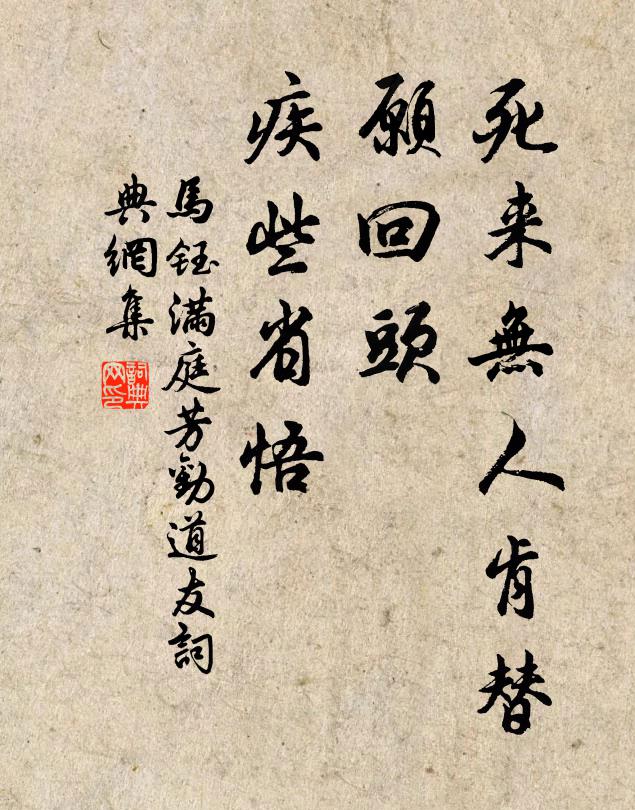 死来無人肯替
願回頭
疾些省悟
馬鈺满庭芳勸道友詞
典網集
詞典
网印